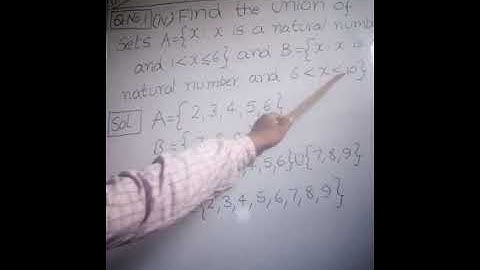 Q.No.1 (iv) Find the union of
sets A={x: x is a natural numbe
and 1<x≤6} and B={x: x is
natural number and 6<x≤10}
Sol. A={2,3,4,5,6}
B={7,8,9}
4,5,6}U{7,8,9}
{2,3,4,5,6,7,8,9}